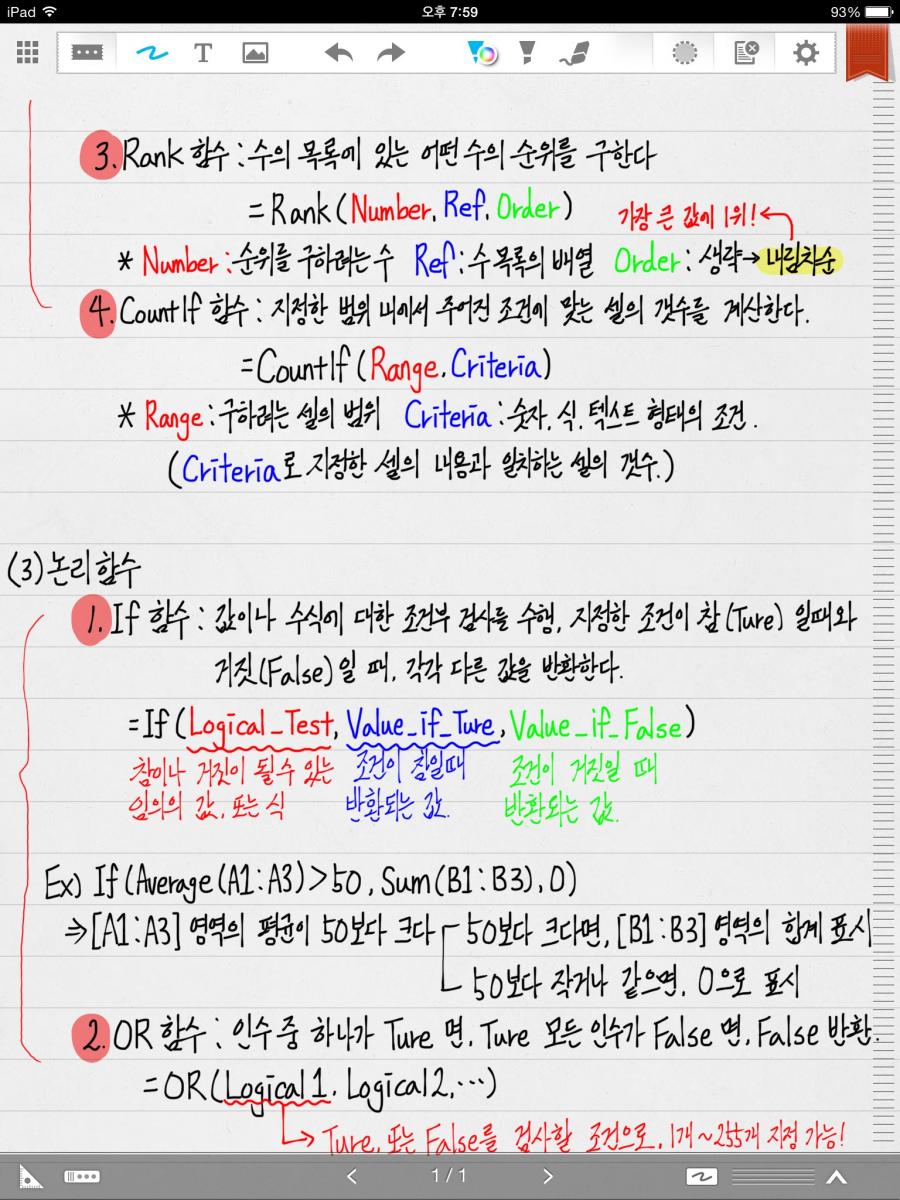 iPad 오후 7:59 93%
T
3. Rank 함수 : 수의 목록에 있는 어떤 수의 순위를 구한다
= Rank (Number, Ref, Order)
가장 큰 값이 1위!
* Number : 순위를 구하려는 수 Ref : 수 목록의 배열 Order : 생략→ 내림차순
4. CountIf 함수 : 지정한 범위 내에서 주어진 조건에 맞는 셀의 갯수를 계산한다.
= CountIf (Range, Criteria)
* Range : 구하려는 셀의 범위 Criteria : 숫자, 식, 텍스트 형태의 조건.
(Criteria로 지정한 셀의 내용과 일치하는 셀의 갯수.)
(3) 논리함수
1. If 함수 : 값이나 수식에 대한 조건부 검사를 수행, 지정한 조건이 참(Ture) 일때와
거짓(False)일 때, 각각 다른 값을 반환한다.
= If (Logical_Test, Value_if_Ture, Value_if_False)
참이나 거짓이 될수 있는 조건이 참일때 조건이 거짓일 때
임의의 값, 또는 식 반환되는 값. 반환되는 값.
Ex) If (Average (A1:A3) > 50, Sum (B1:B3), 0)
⇒ [A1:A3] 영역의 평균이 50보다 크다 50보다 크다면, [B1:B3] 영역의 합계 표시
50보다 작거나 같으면, 0으로 표시
2. OR 함수 : 인수 중 하나가 Ture 면, Ture 모든 인수가 False 면, False 반환.
= OR (Logical1, Logical2, ⋯)
→ Ture, 또는 False를 검사할 조건으로, 1개~255개 지정 가능!
1 / 1